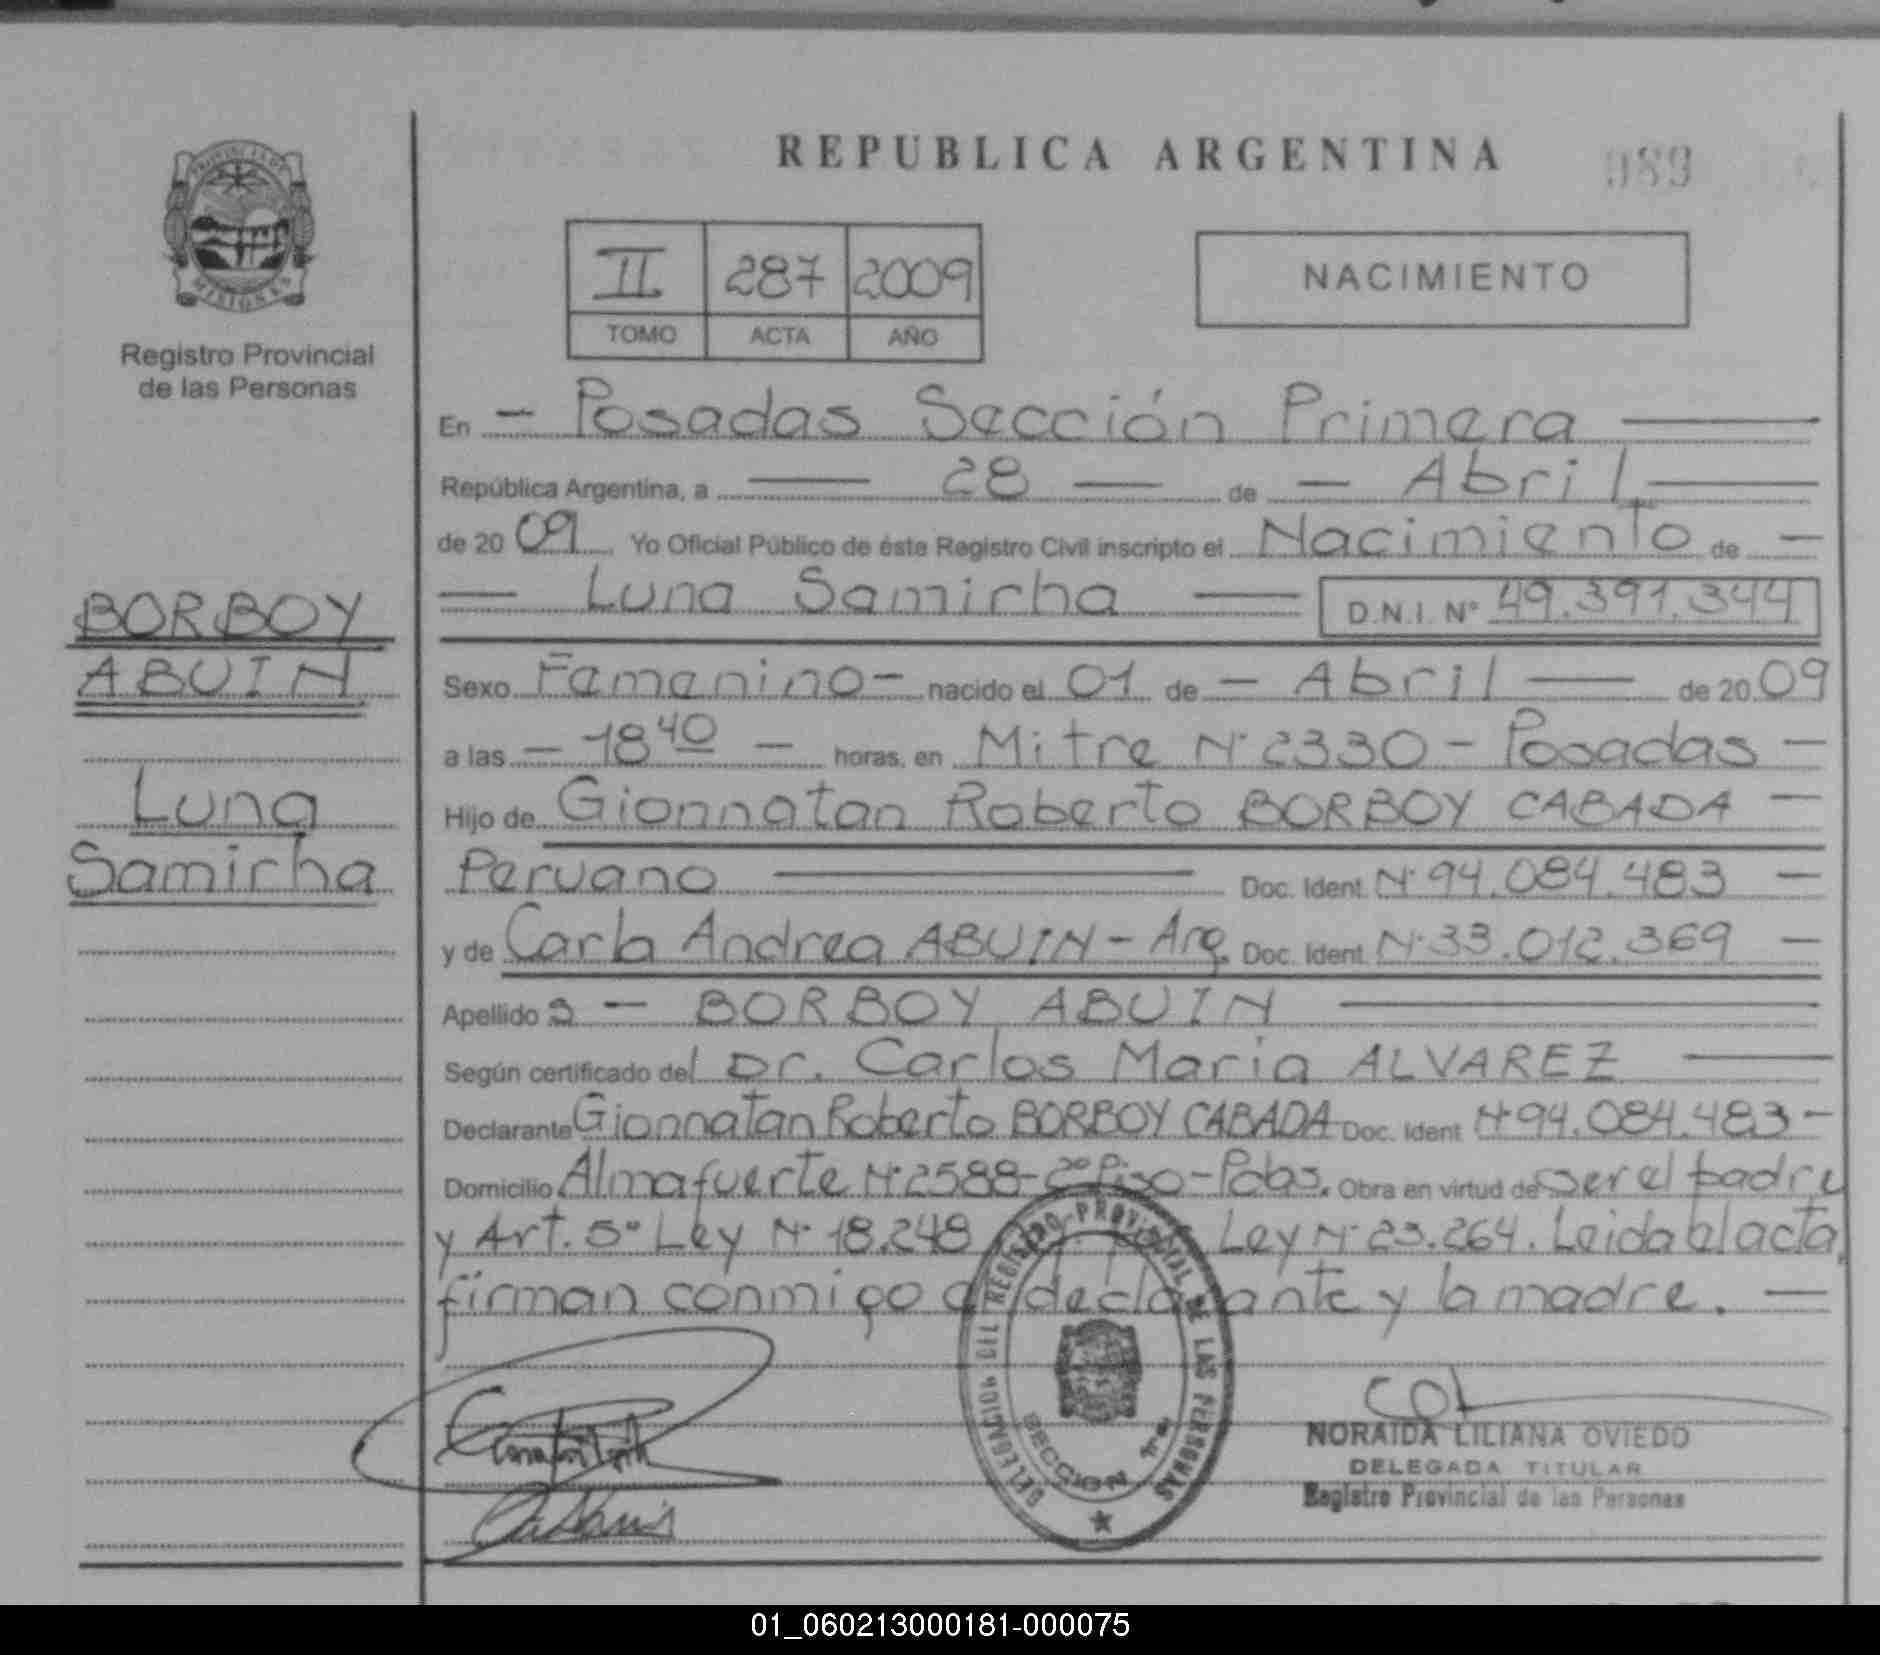 REPUBLICA ARGENTINA
989
PROVINCIA DE
MISIONES
Registro Provincial
de las Personas
II 287 2009
TOMO ACTA AÑO
NACIMIENTO
En - Posadas Sección Primera
República Argentina, a 28 de - Abril
de 2009 Yo Oficial Público de éste Registro Civil inscripto el Nacimiento de -
Luna Samirha D.N.I. Nº 49.391.344
BORBOY
ABUIN
Luna
Samirha
Sexo Femenino - nacido el 01 de - Abril de 2009
a las - 18 40 - horas, en Mitre Nº 2330 - Posadas -
Hijo de Gionnatan Roberto BORBOY CABADA -
Peruano Doc. Ident. Nº 94.084.483 -
y de Carla Andrea ABUIN - Arg. Doc. Ident. Nº 33.012.369 -
Apellido s - BORBOY ABUIN
Según certificado del Dr. Carlos Maria ALVAREZ
Declarante Gionnatan Roberto BORBOY CABADA Doc. Ident. Nº 94.084.483 -
Domicilio Almafuerte Nº 2588 - 2º Piso - Pdas. Obra en virtud de ser el padre
y Art. 5º Ley Nº 18.248 Ley Nº 23.264. Leida el acta,
firman conmigo el declarante y la madre. -
DELEGACION DEL REGISTRO PROVINCIAL DE LAS PERSONAS
SECCION 1ra
NORAIDA LILIANA OVIEDO
DELEGADA TITULAR
Registro Provincial de las Personas
01_060213000181-000075